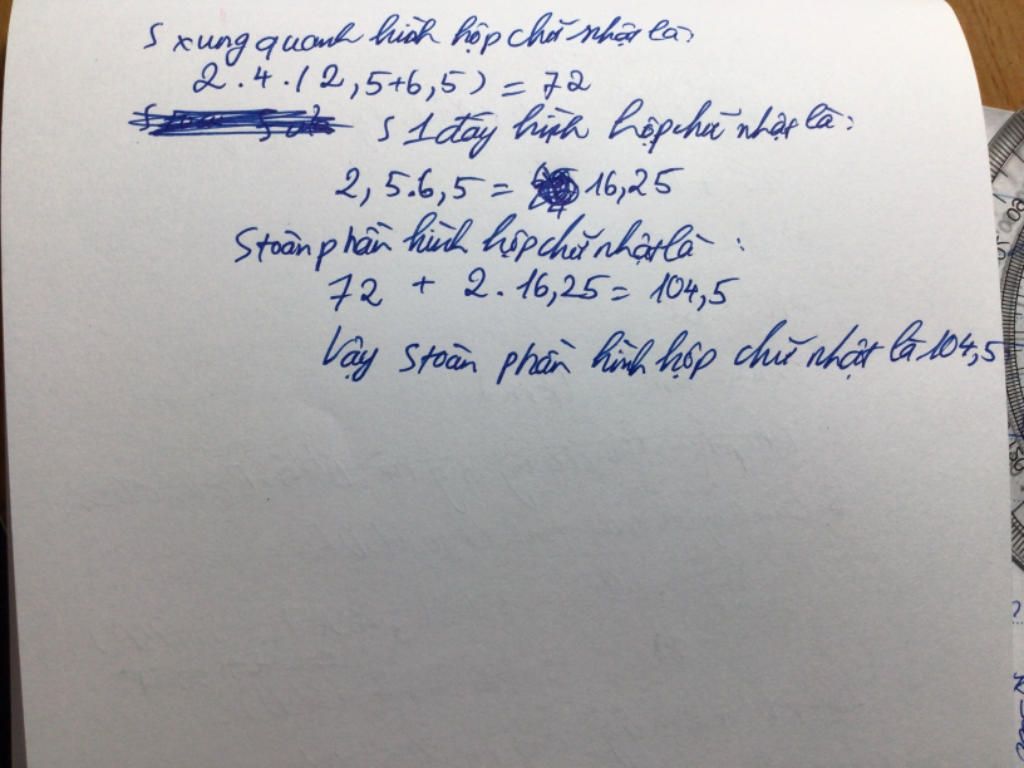 S xung quanh hình hộp chữ nhật là:
2.4.(2,5+6,5) = 72
S 1 đáy hình hộp chữ nhật là:
2,5.6,5 = 16,25
S toàn phần hình hộp chữ nhật là :
72 + 2.16,25 = 104,5
Vậy S toàn phần hình hộp chữ nhật là 104,5